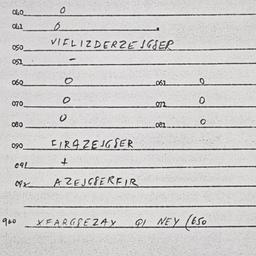 040 0
041 0
050 VIFLIZDERZEJGSER
051 -
060 0 061 0
070 0 071 0
080 0 081 0
090 FIRAZEJGSER
091 +
092 AZEJGSERFIR
940 XFARGSEZAY QI NEY (650